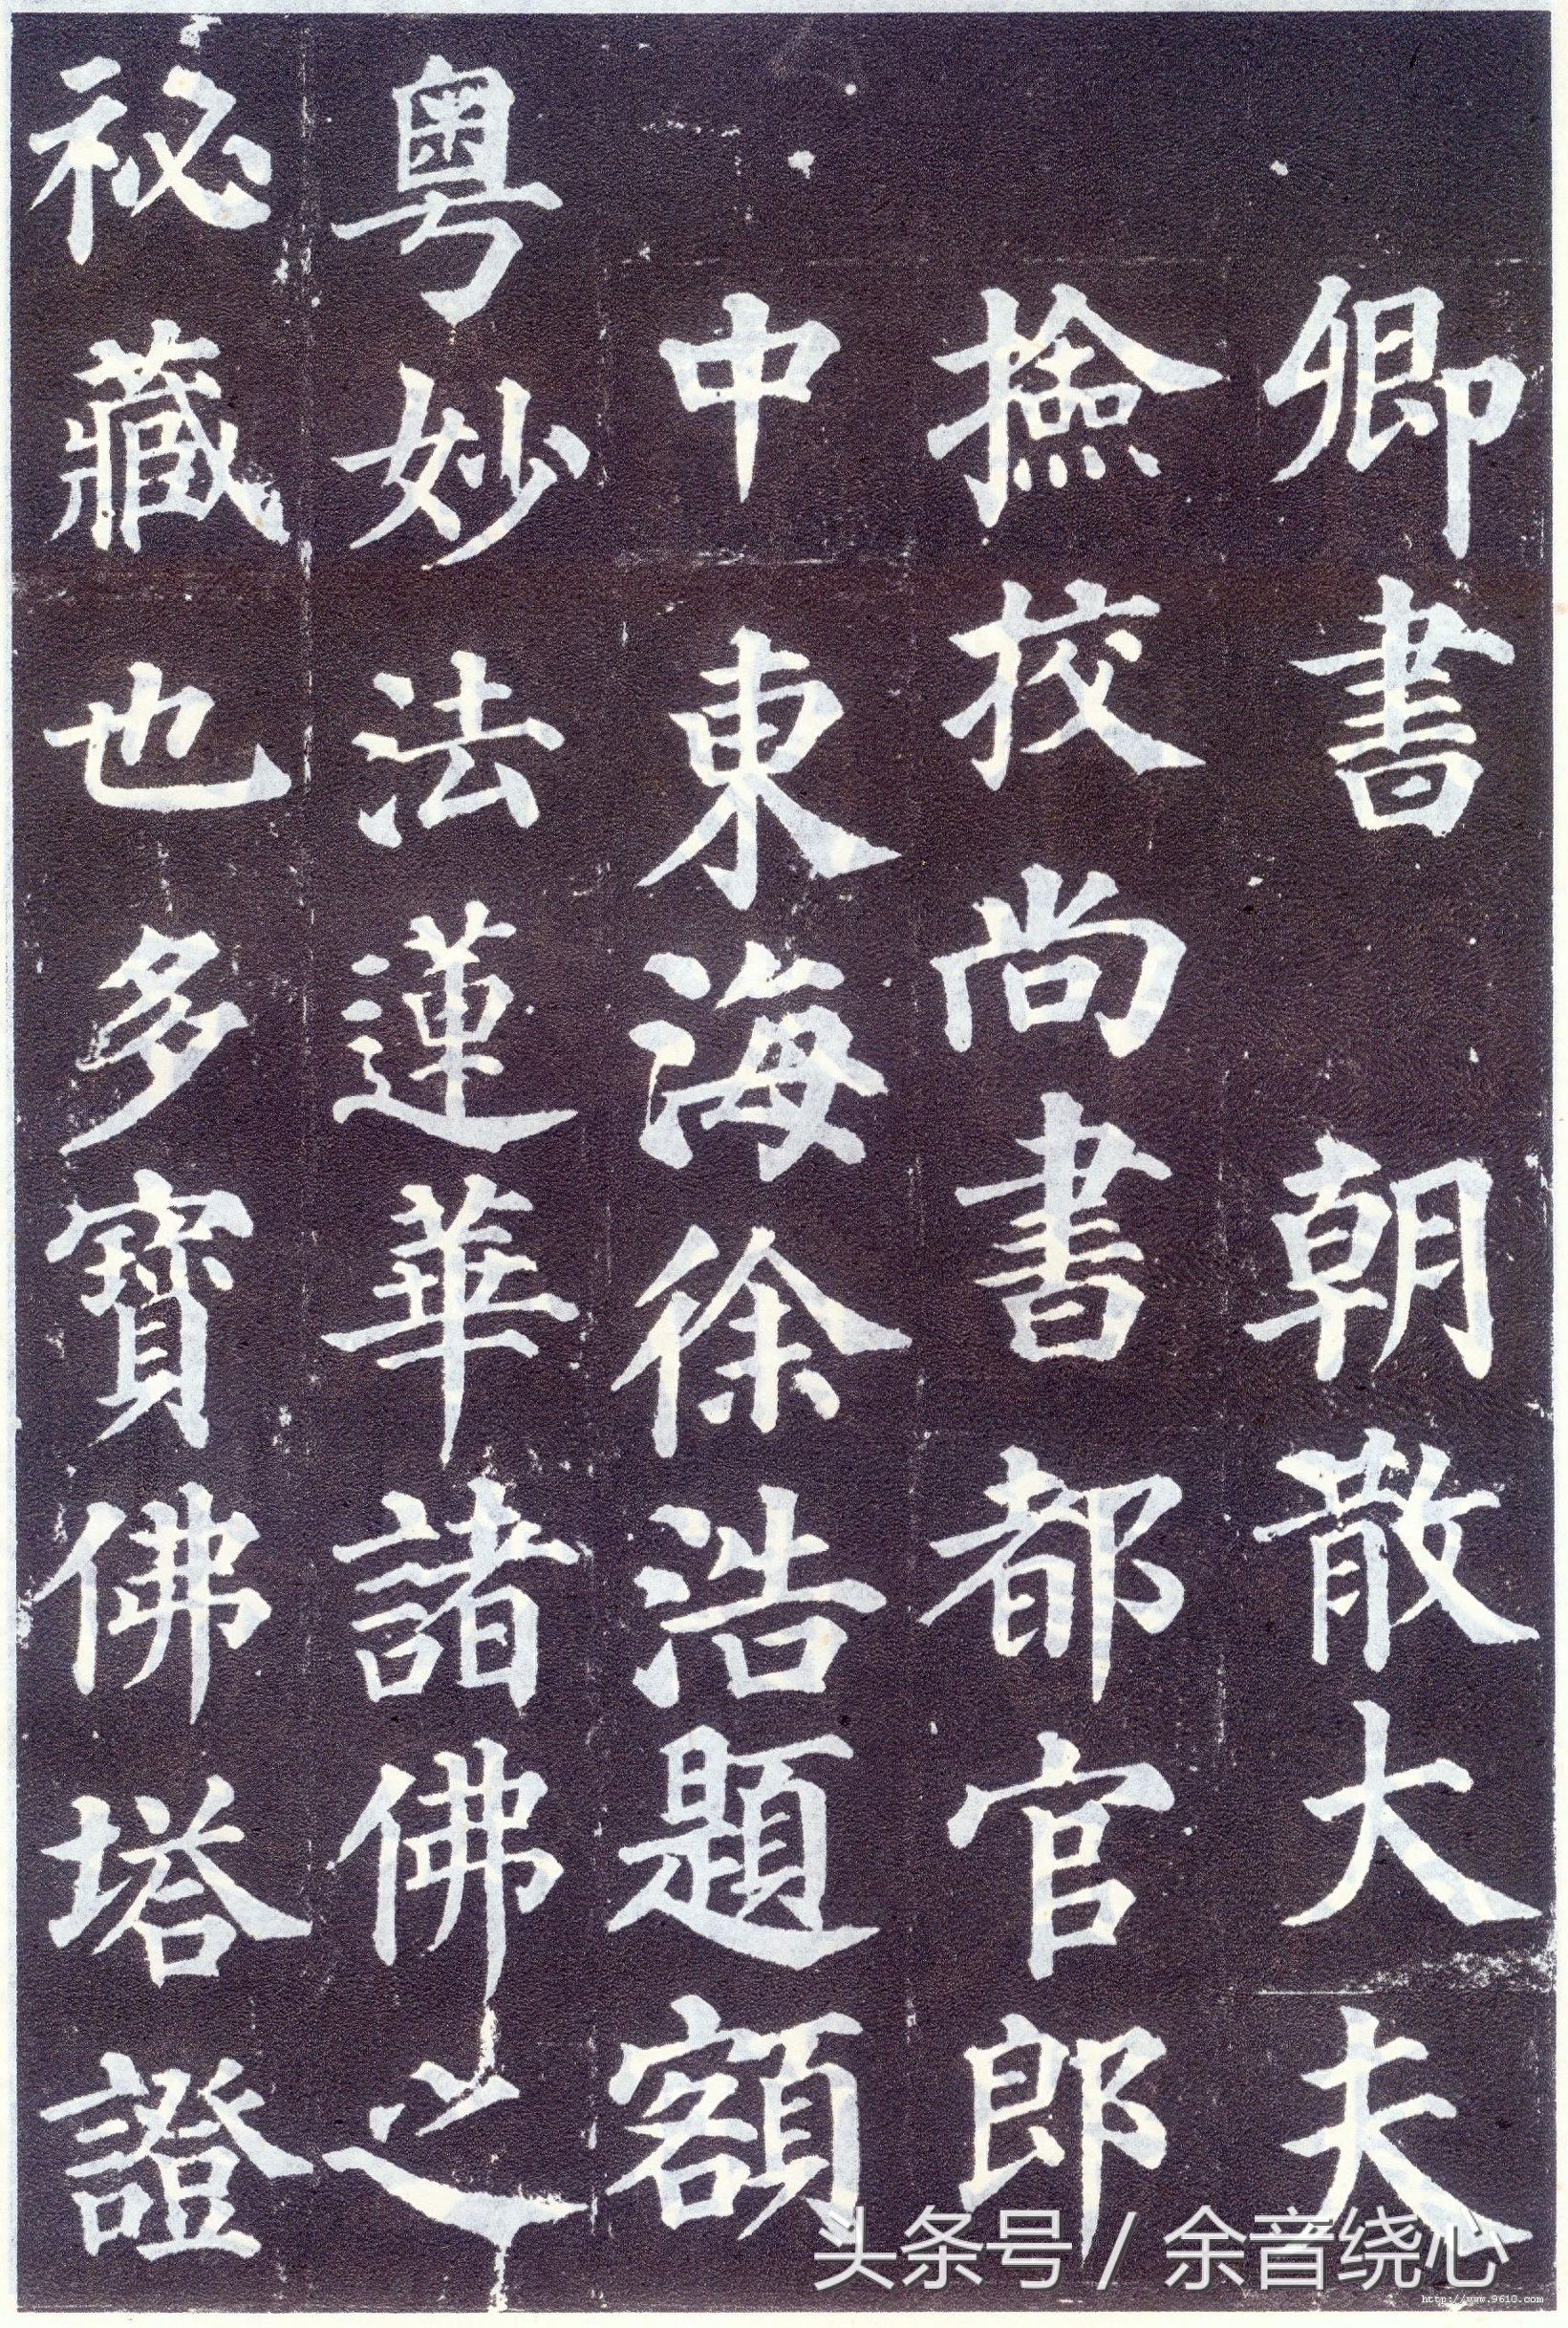 卿書　朝散大夫
撿挍尚書都官郎
中東海徐浩題額
粤妙法蓮華諸佛之
祕藏也多寶佛塔證
头条号 / 余音绕心
http://www.9610.com